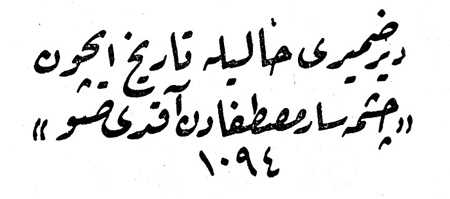 دیر ضمیری حالیله تاریخ ایچون
«چشمه سار مصطفادن آقدی صو»
١٠٩٤